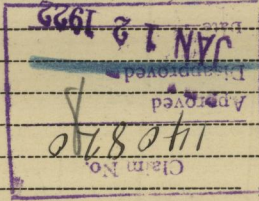 Claim No.
140820
Approved
Disapproved
JAN 12 1922
Date